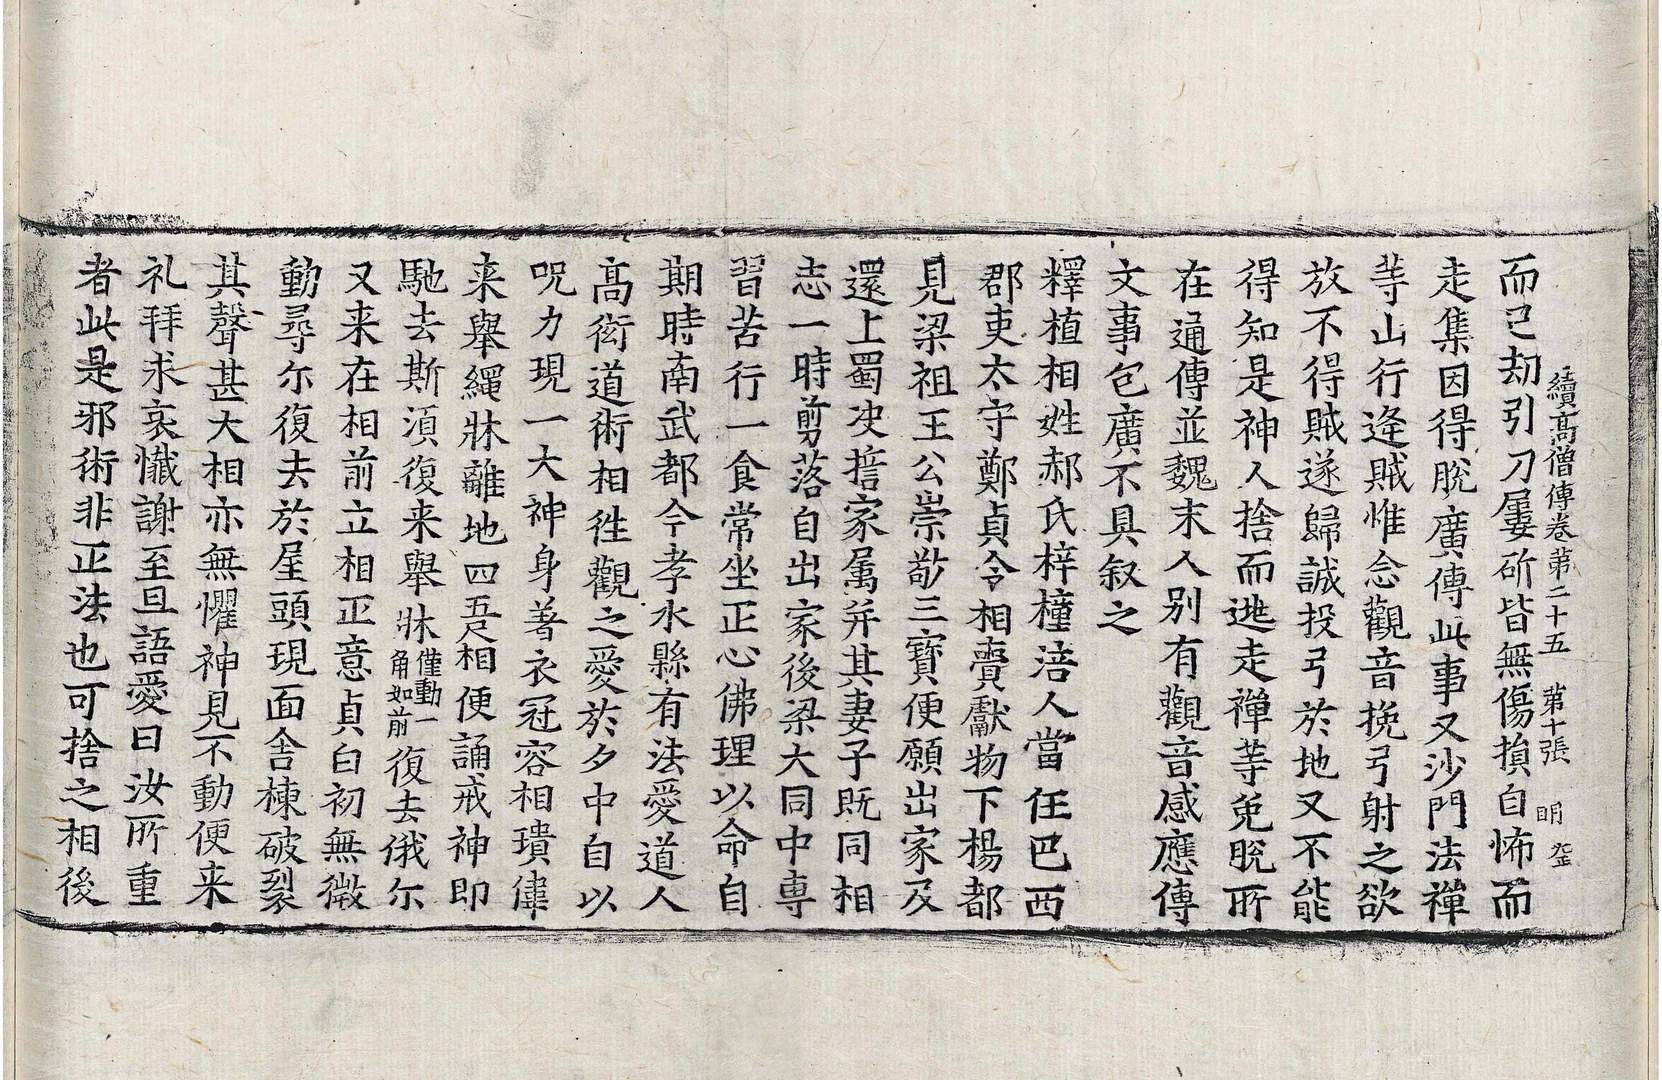 續高僧傳卷第二十五　第十張　明
而已刼引刀屢斫皆無傷損自怖而
走集因得脫廣傳此事又沙門法禪
等山行逢賊惟念觀音挽弓射之欲
放不得賊遂歸誠投弓於地又不能
得知是神人捨而逃走禪等免脫所
在通傳並魏末人別有觀音感應傳
文事包廣不具叙之
釋植相姓郝氏梓橦涪人當任巴西
郡吏太守鄭貞令相賷獻物下楊都
見梁祖王公崇敬三寶便願出家及
還上蜀決捨家属并其妻子既同相
志一時剪落自出家後梁大同中專
習苦行一食常坐正心佛理以命自
期時南武都今孝水縣有法愛道人
高衒道術相徃觀之愛於夕中自以
呪力現一大神身著衣冠容相瓌偉
来舉繩牀離地四五尺相便誦戒神即
馳去斯湏復来舉牀僅動一角如前復去俄尒
又来在相前立相正意貞白初無微
動尋尒復去於屋頭現面舍棟破裂
其聲甚大相亦無懼神見不動便来
礼拜求哀懺謝至旦語愛曰汝所重
者此是邪術非正法也可捨之相後